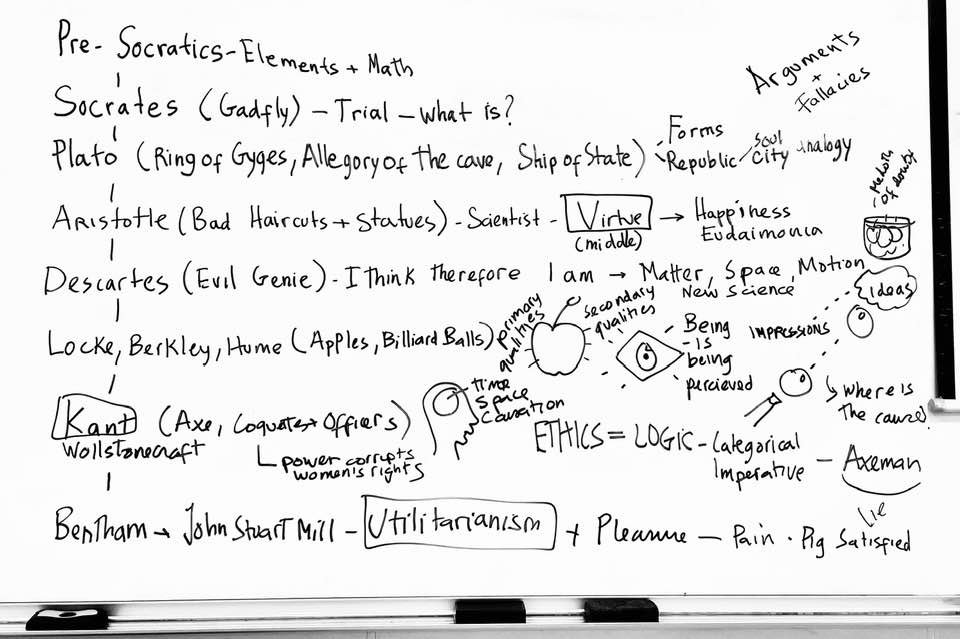 Pre-Socratics-Elements + Math
Arguments
+
Fallacies
Socrates (Gadfly) – Trial – What is?
Plato (Ring of Gyges, Allegory of the cave, Ship of State)
Forms
Republic
Soul
City analogy
Method
of doubt
Aristotle (Bad Haircuts + Statues) - Scientist - Virtue → Happiness
(middle)
Eudaimonia
Descartes (Evil Genie) - I Think therefore I am → Matter, Space, Motion
New Science
Ideas
Locke, Berkley, Hume (Apples, Billiard Balls)
primary
qualities
secondary
qualities
Being
is
being
percieved
IMPRESSIONS
Where is
the cause?
Kant (Axe, Coquates + Officers)
time
space
causation
Wollstonecraft
power corrupts
women's rights
ETHICS = LOGIC - Categorical
Imperative – Axeman
Lie
Bentham → John Stuart Mill – Utilitarianism + Pleasure – Pain · Pig Satisfied